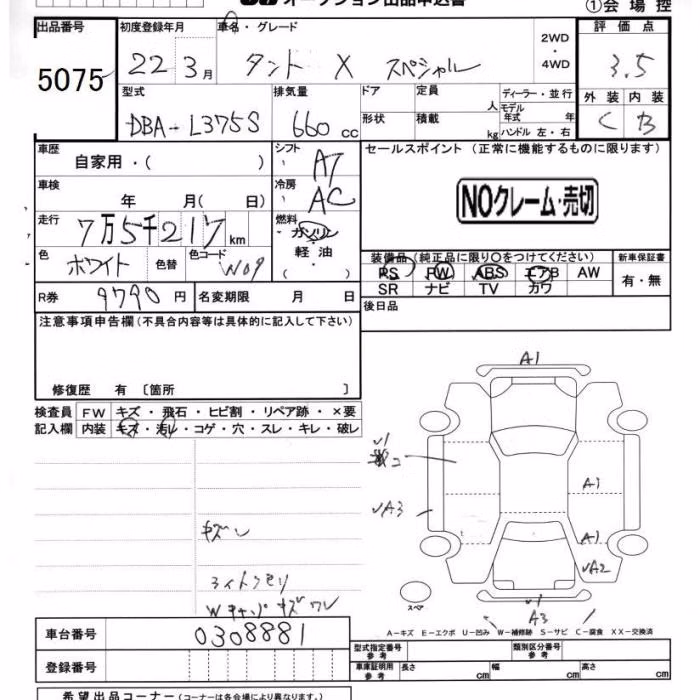 オークション出品申込書
①会場控
出品番号 初度登録年月 車名・グレード 2WD・4WD 評価点
5075 22 3月 タント X スペシャル 3.5
型式 排気量 ドア 定員 人 ディーラー・並行 外装 内装
DBA-L375S 660cc 形状 積載 kg モデル年式 年 ハンドル 左・右 C B
車歴 シフト セールスポイント（正常に機能するものに限ります）
自家用・( ) AT
車検 冷房 NOクレーム・売切
年 月( 日) AC
走行 燃料
7万5千217km ガソリン
軽油
( )
色 色替 色コード
ホワイト W09
装備品（純正品に限り〇をつけてください） 新車保証書
PS PW ABS エアB AW 有・無
SR ナビ TV カワ
R券 9790円 名変期限 月 日 後日品
注意事項申告欄（不具合内容等は具体的に記入して下さい）
修復歴 有〔箇所 〕
検査員 FW キズ・飛石・ヒビ割・リペア跡・×要
記入欄 内装 キズ・汚レ・コゲ・穴・スレ・キレ・破レ
A1
A1
A3
A1
A2
キズレ
スペア
A3
A-キズ E-エクボ U-凹み W-補修跡 S-サビ C-腐食 XX-交換済
車台番号 0308881
型式指定番号 参考 類別区分番号 参考
登録番号 車庫証明用 参考 長さ cm 幅 cm 高さ cm
希望出品コーナー（コーナーは各会場により異なります。）